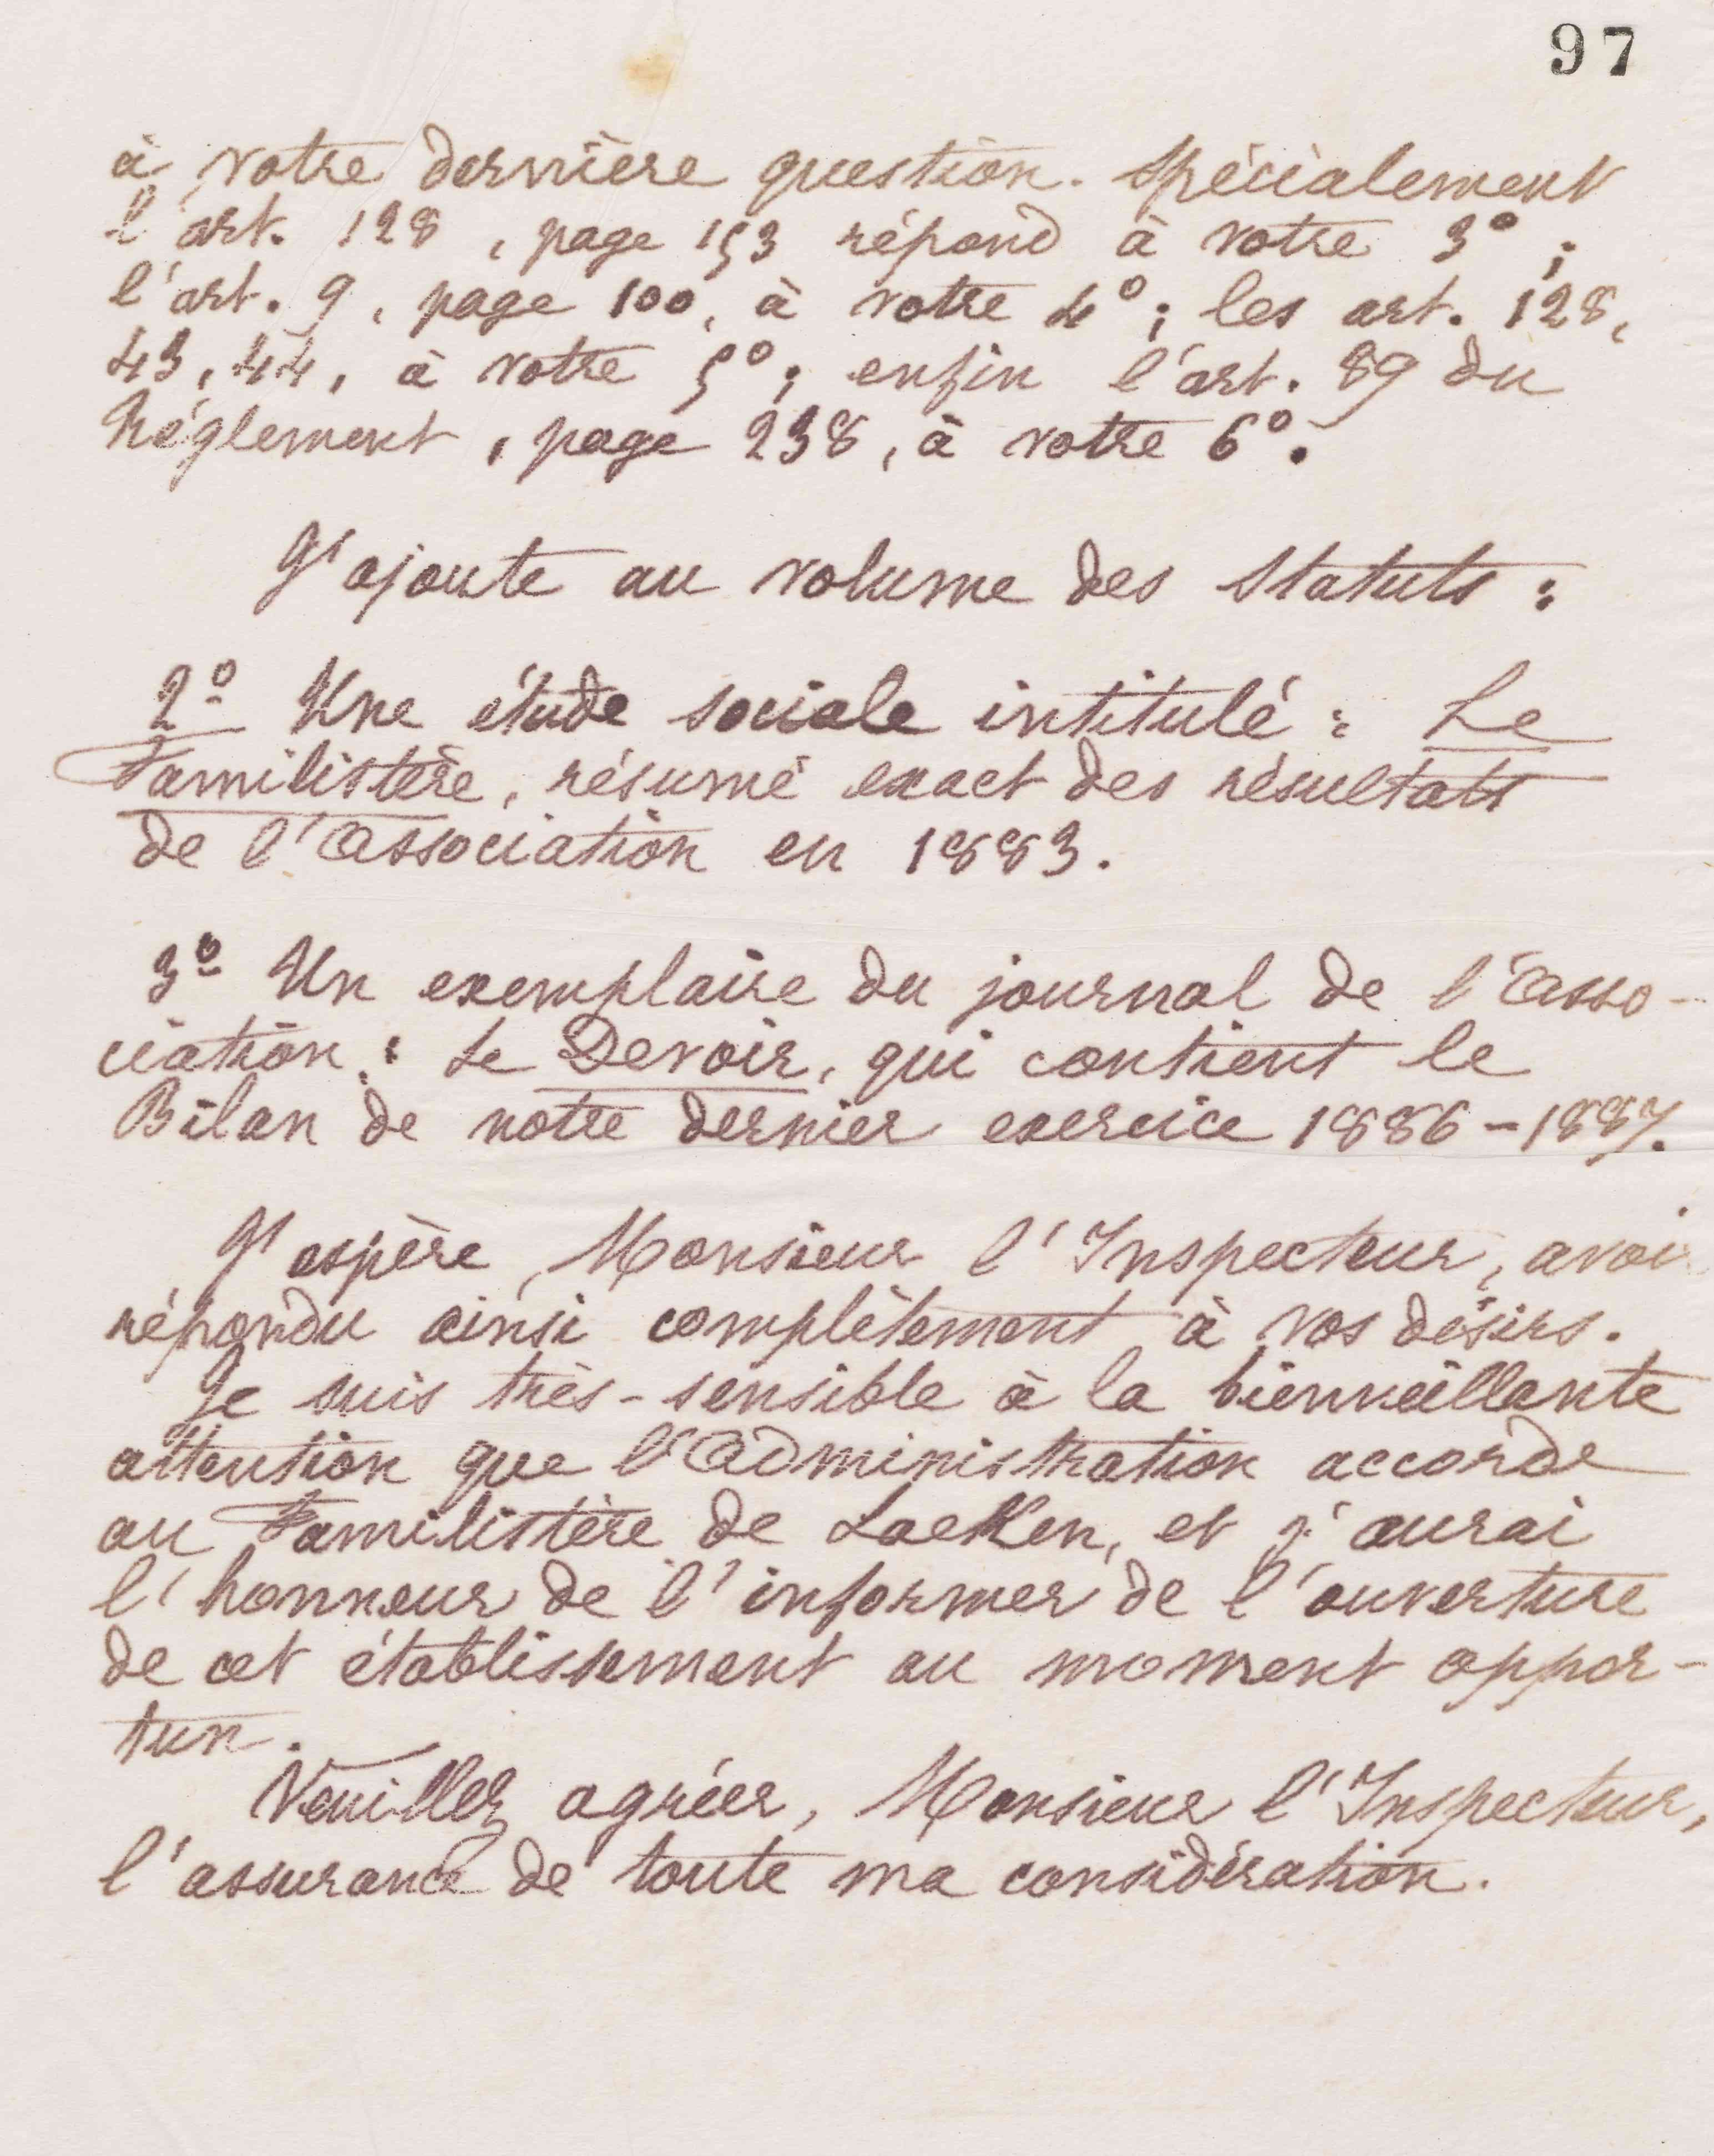 97
à votre dernière question. Spécialement
l'art. 128, page 153 répond à votre 3° ;
l'art. 9, page 100, à votre 4° ; les art. 128,
43, 44, à votre 5° ; enfin l'art. 89 du
Règlement, page 238, à votre 6°.
J'ajoute au volume des Statuts :
2° Une étude sociale intitulé : Le
Familistère, résumé exact des résultats
de l'Association en 1883.
3° Un exemplaire du journal de l'Asso-
ciation : Le Devoir, qui contient le
Bilan de notre dernier exercice 1886-1887.
J'espère, Monsieur l'Inspecteur, avoir
répondu ainsi complètement à vos désirs.
Je suis très-sensible à la bienveillante
attention que l'Administration accorde
au Familistère de Laeken, et j'aurai
l'honneur de l'informer de l'ouverture
de cet établissement au moment oppor-
tun.
Veuillez agréer, Monsieur l'Inspecteur,
l'assurance de toute ma considération.